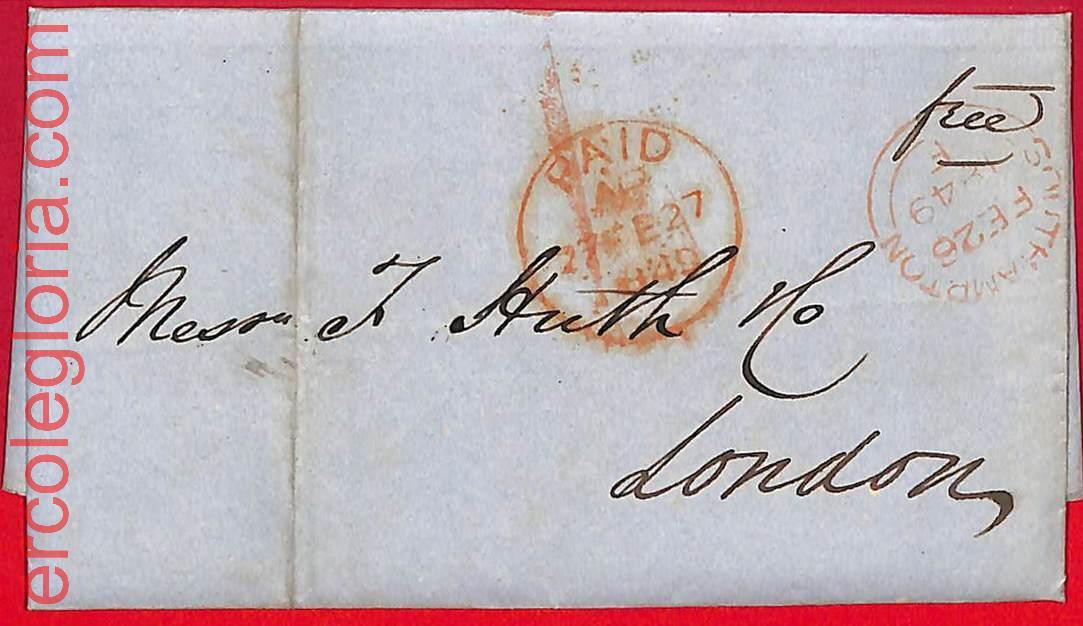 ercolegloria.com
free
SOUTHAMPTON
FE 26
1849
PAID
27 FE 27
1849
Messrs F Huth & Co
London